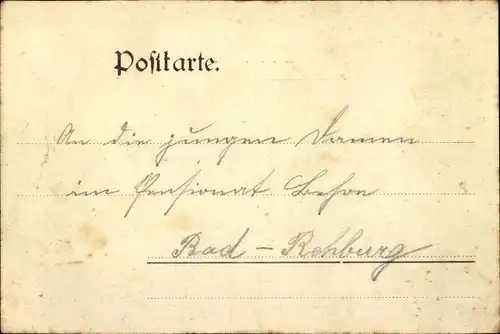 Postkarte.
An die jungen Damen
im Pensionat
Bad - Rehburg